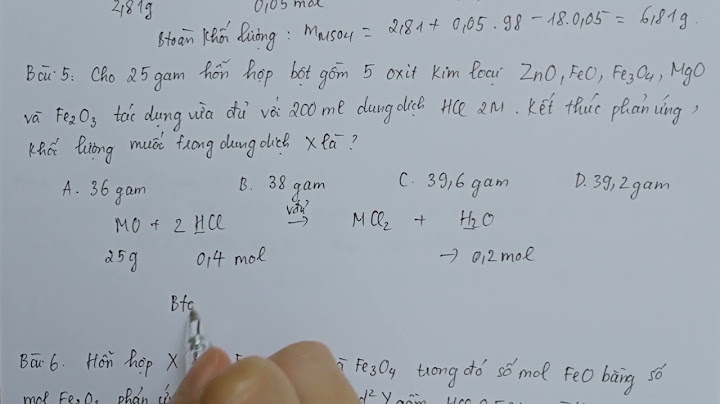 2,81g 0,05 mol
Btoàn khối lượng : mMSO4 = 2,81 + 0,05 . 98 - 18.0,05 = 6,81g.
Bài 5: Cho 25 gam hỗn hợp bột gồm 5 oxit kim loại ZnO, FeO, Fe3O4, MgO
và Fe2O3 tác dụng vừa đủ với 200 ml dung dịch HCl 2M. Kết thúc phản ứng,
khối lượng muối trong dung dịch X là ?
A. 36 gam B. 38 gam C. 39,6 gam D. 39,2 gam
vđủ
MO + 2 HCl → MCl2 + H2O
25g 0,4 mol → 0,2 mol
Bto
Bài 6. Hỗn hợp X Fe3O4 trong đó số mol FeO bằng số
mol Fe2O3 phản